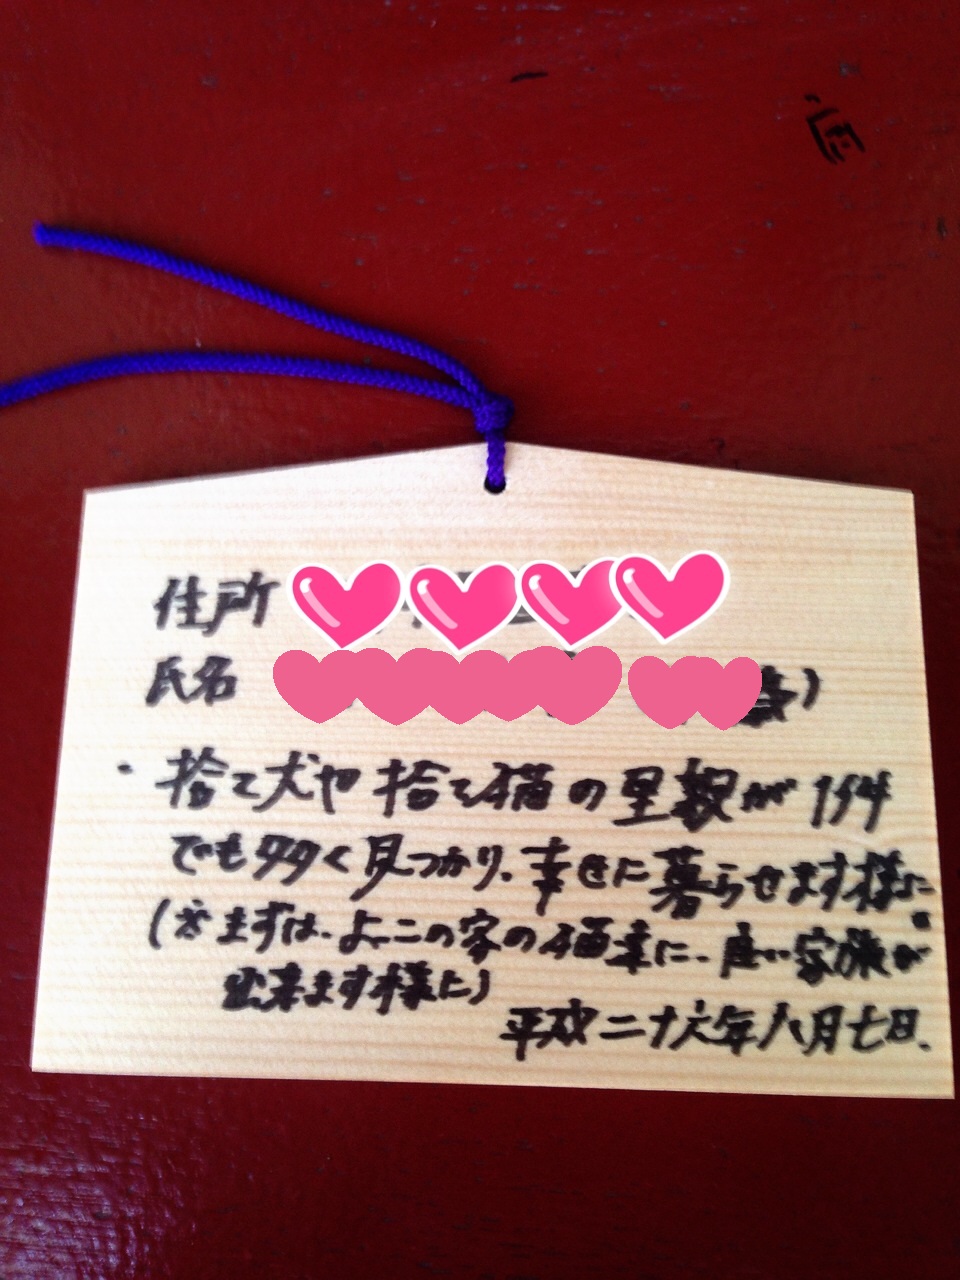 住所
氏名 )
・捨て犬や捨て猫の里親が1件
でも多く見つかり、幸せに暮らせます様に。
(※まずは、よこの家の猫達に、良い家族が
出来ます様に)
平成二十六年八月七日、